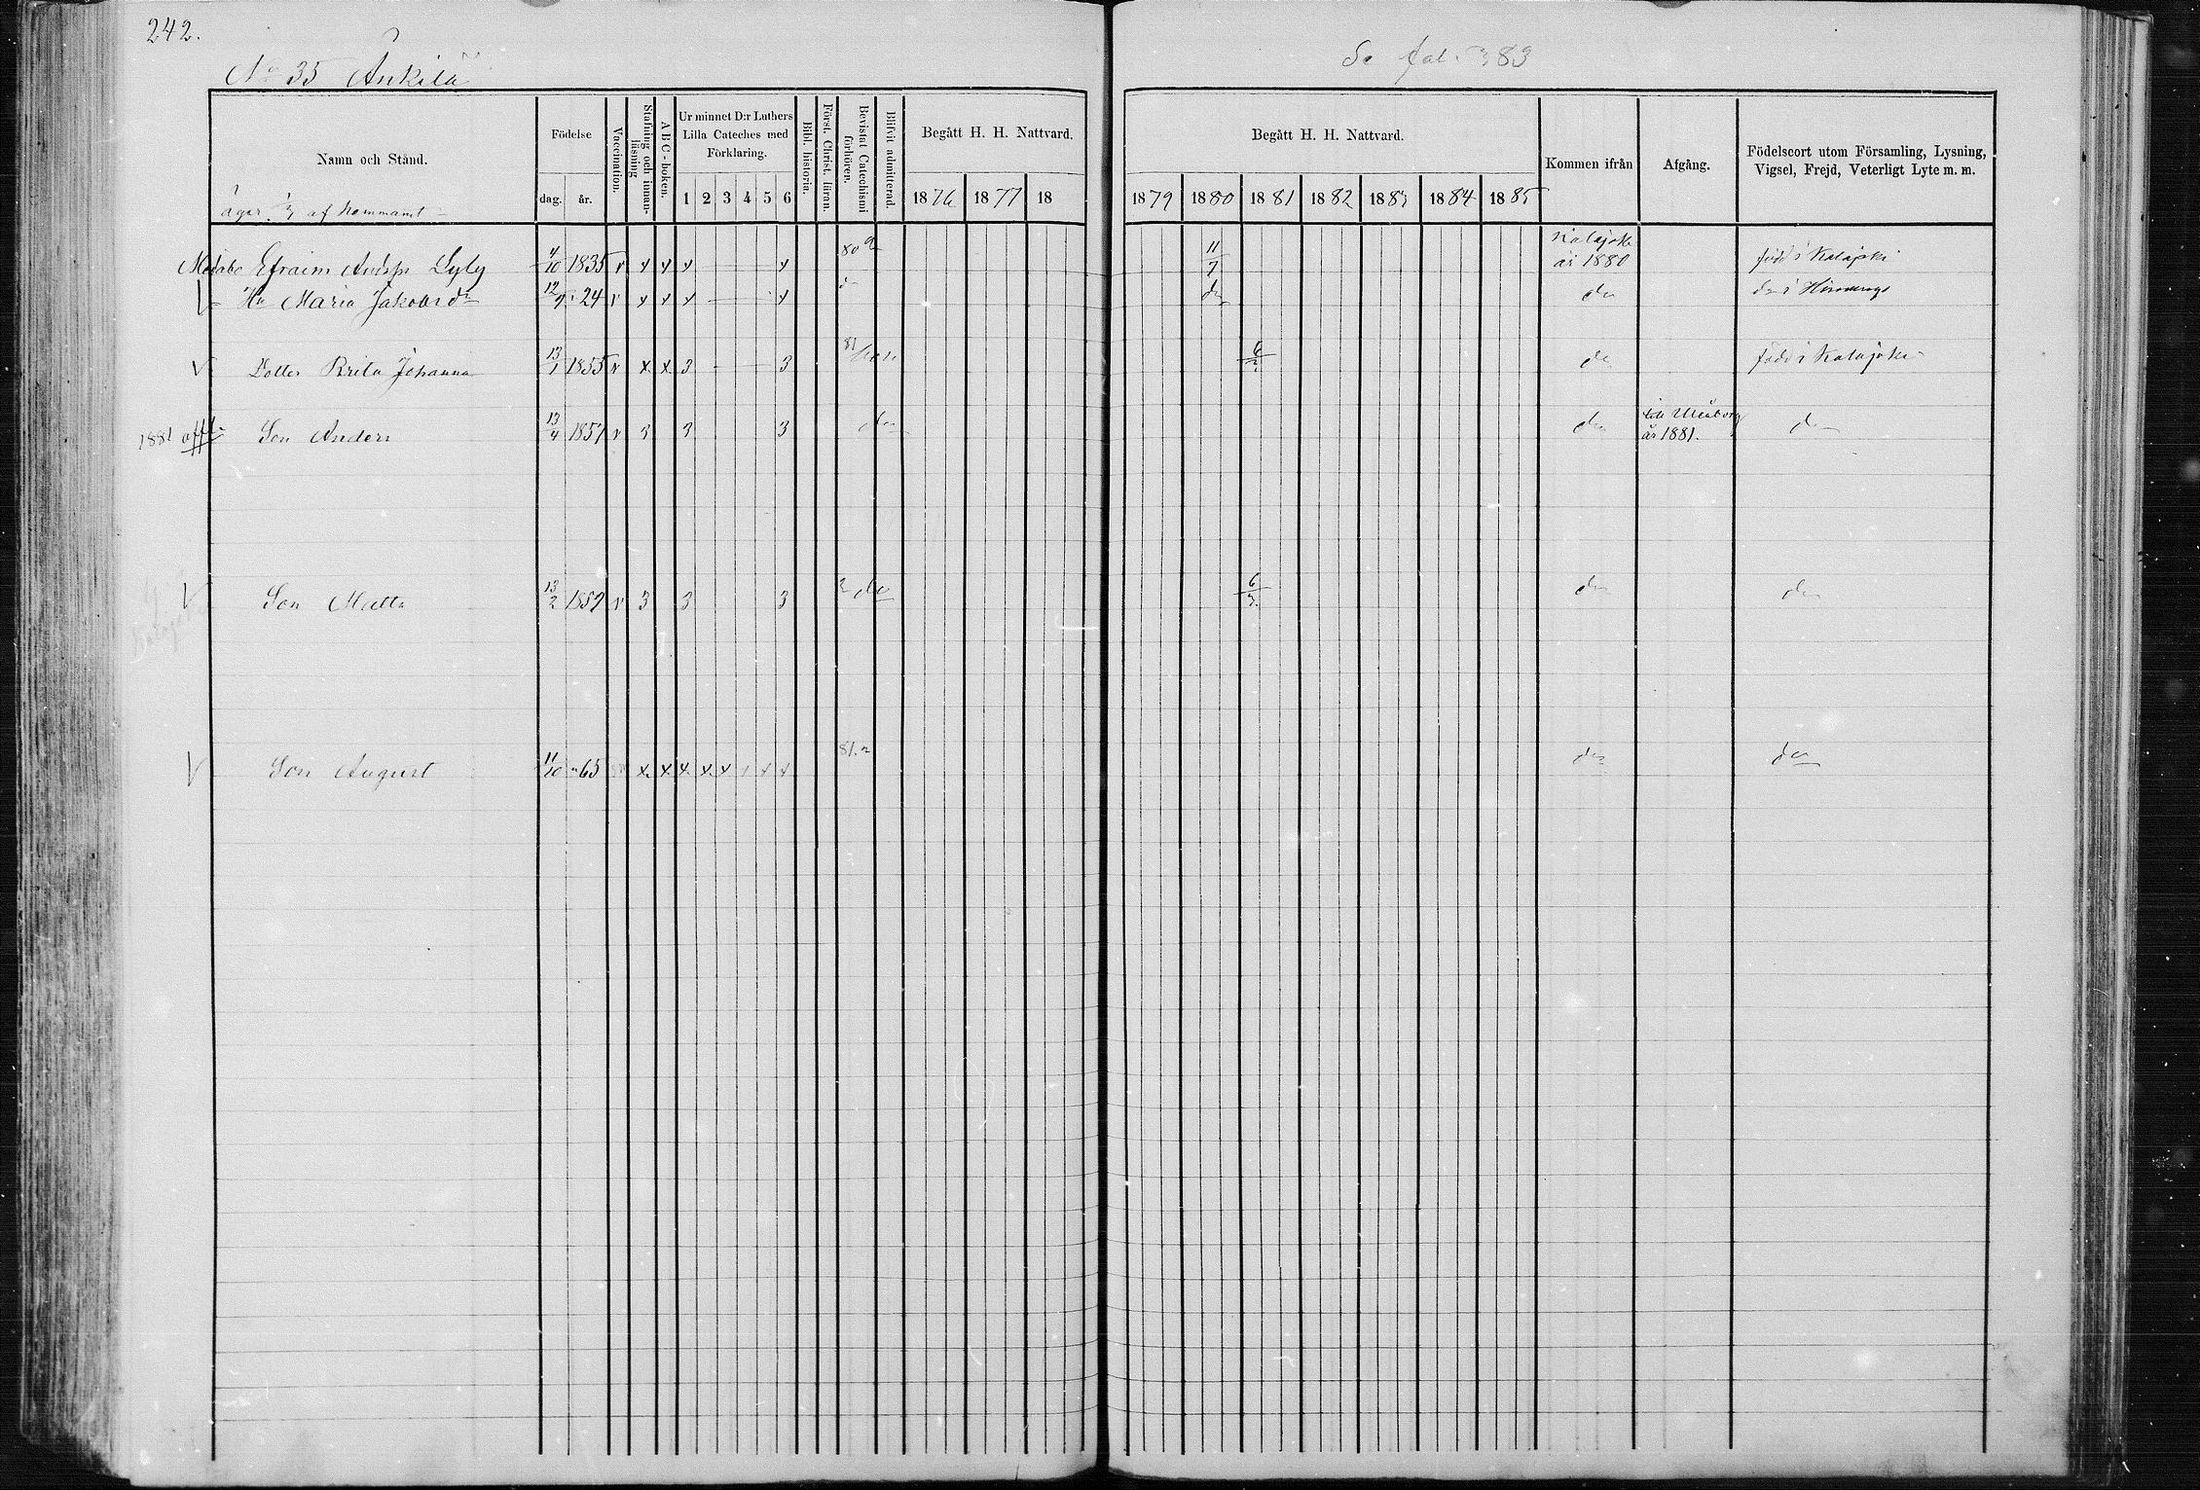 242.
No 35 Ankilä
Se fol. 383
Namn och Stånd.
Födelse
dag. år.
Vaccination.
Stafning och innan-läsning
ABC-boken.
Ur minnet D:r Luthers
Lilla Cateches med
Förklaring.
1 2 3 4 5 6
Bibl. historia.
Först. Christ. läran.
Bevistat Catechismi förhören.
Blifvit admitterad.
Begått H. H. Nattvard.
1876 1877 18
Begått H. H. Nattvard.
1879 1880 1881 1882 1883 1884 1885
Kommen ifrån
Afgång.
Födelseort utom Församling, Lysning,
Vigsel, Frejd, Veterligt Lyte m. m.
äger af hemmanet
Efraim Andsn Lyly 4/10 1835 v x x x x 80 11/7 Kalajoki år 1880 född i Kalajoki
Hu Maria Jakobsdr 12/9 " 24 v x x x x do do do i Himango
Dotter Brita Johanna 13/1 1855 v x x 3 3 81 6/2 do född i Kalajoki
1881 affl. Son Anders 13/4 1857 v 3 3 3 do do till Uleåborg år 1881. do
Son Matts 13/2 1859 v 3 3 3 do 6/3 do do
Son August 11/10 " 65 x x x x x x x x 81 do do